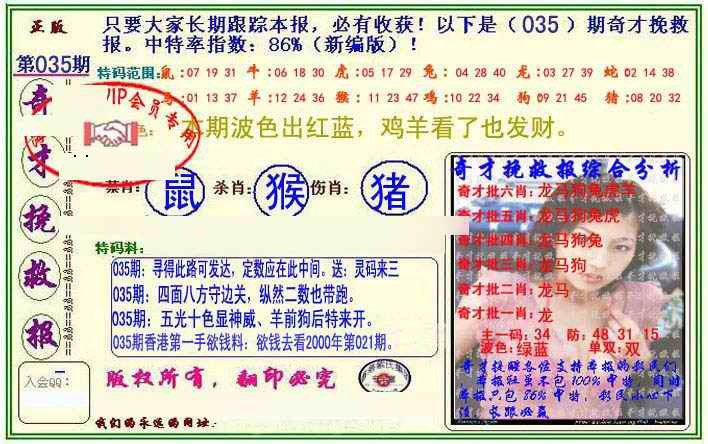 正版
只要大家长期跟踪本报，必有收获！以下是（035）期奇才挽救
报。中特率指数：86%（新编版）！
第035期
特码范围：鼠：07 19 31 牛：06 18 30 虎：05 17 29 兔：04 28 40 龙：03 27 39 蛇：02 14 38
：01 13 37 羊：12 24 36 猴：11 23 47 鸡：10 22 34 狗：09 21 45 猪：08 20 32
VIP会员专用
色：本期波色出红蓝，鸡羊看了也发财。
奇才挽救报
禁肖：鼠 杀肖：猴 伤肖：猪
特码料：
035期：寻得此路可发达，定数应在此中间。送：灵码来三
035期：四面八方守边关，纵然二数也带跑。
035期：五光十色显神威、羊前狗后特来开。
035期香港第一手欲钱料：欲钱去看2000年第021期。
版权所有，翻印必究
入会QQ：
我们的永远的网址：
奇才挽救报综合分析
奇才批六肖：龙马狗兔虎羊
奇才批五肖：龙马狗兔虎
奇才批四肖：龙马狗兔
奇才批三肖：龙马狗
奇才批二肖：龙马
奇才批一肖：龙
主一码：34 防：48 31 15
波色：绿蓝 单双：双
奇才挽救各位支持本报的彩民们
本报狂虽不包100%中特，同时
本报只包86%中特，彩民小心下
注